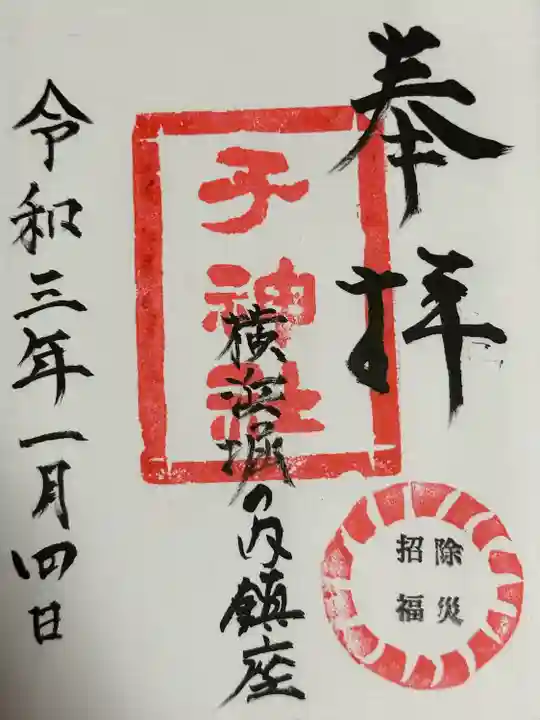 奉拝
子神社
横浜堀の内鎮座
除災
招福
令和三年一月四日